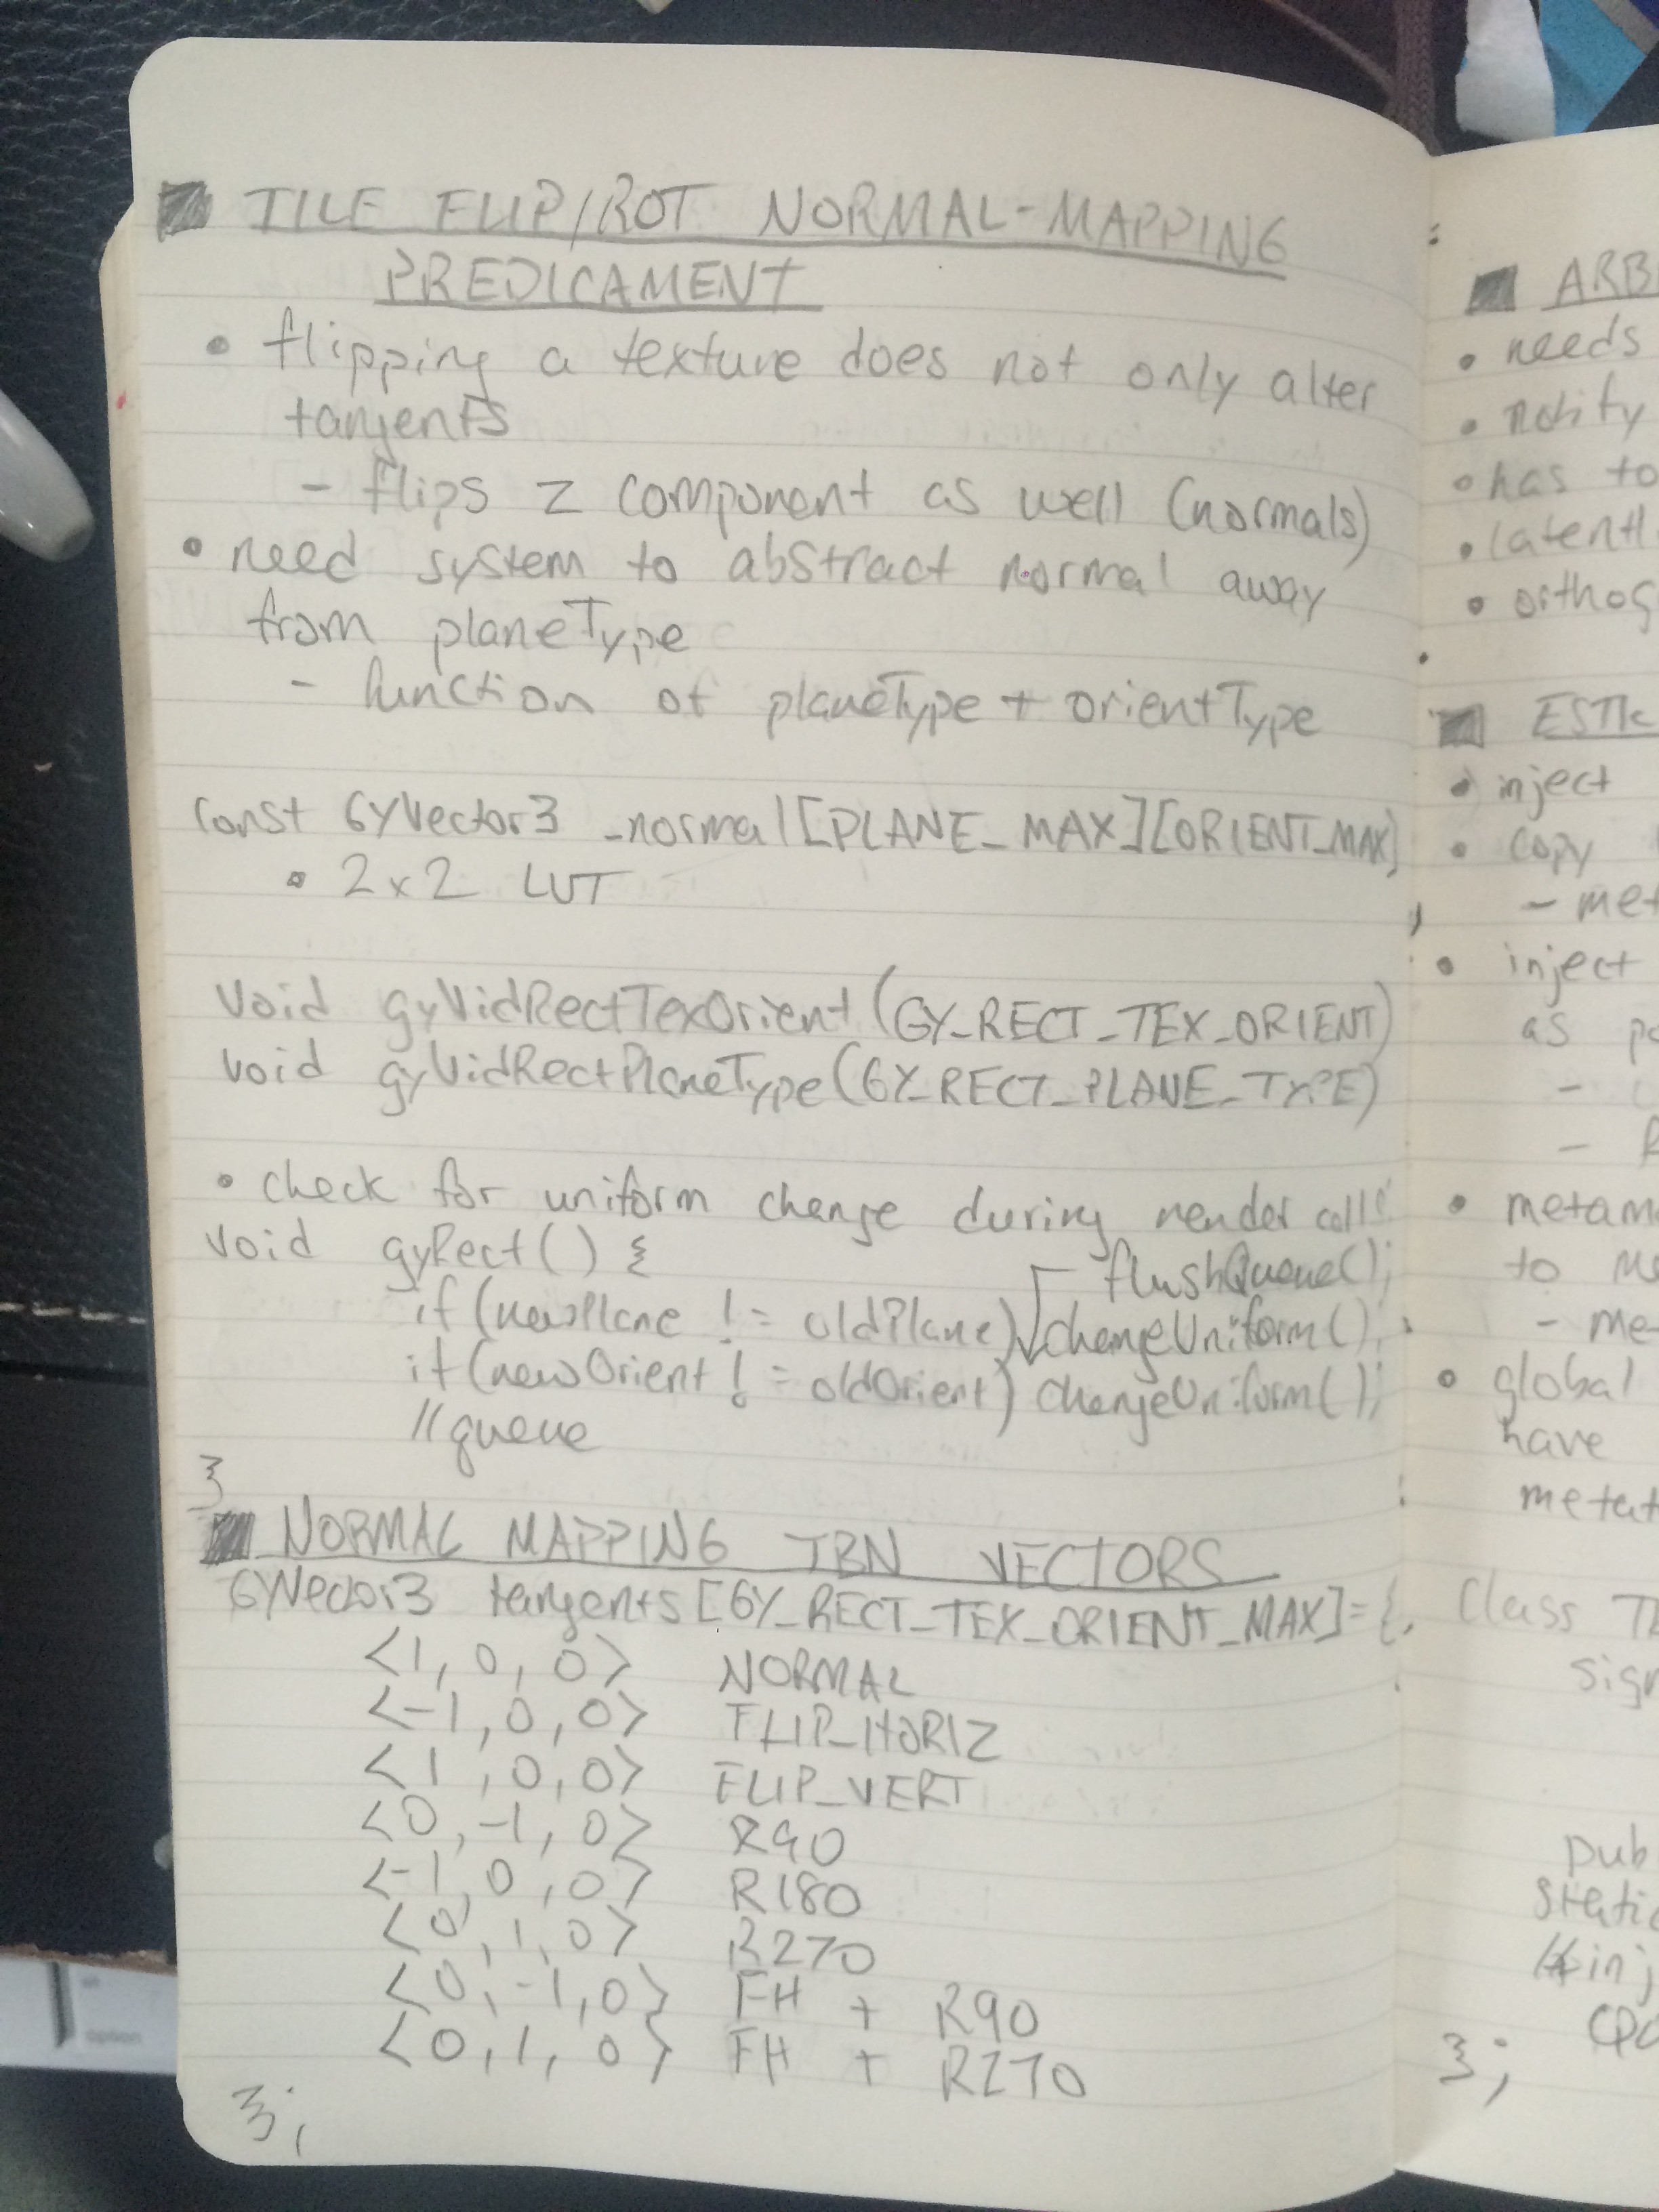 TILE FLIP/ROT NORMAL-MAPPING
PREDICAMENT
• flipping a texture does not only alter
tangents
- flips z component as well (normals)
• need system to abstract normal away
from planeType
- function of planeType + orientType
const GYVector3 _normal[PLANE_MAX][ORIENT_MAX]
• 2x2 LUT
void gyVidRectTexOrient(GY_RECT_TEX_ORIENT)
void gyVidRectPlaneType(GY_RECT_PLANE_TYPE)
• check for uniform change during render call
void gyRect() {
flushQueue();
if(newPlane != oldPlane) changeUniform();
if(newOrient != oldOrient) changeUniform();
//queue
}
NORMAL MAPPING TBN VECTORS
GYVector3 tangents[GY_RECT_TEX_ORIENT_MAX]={
<1, 0, 0> NORMAL
<-1, 0, 0> FLIP_HORIZ
<1, 0, 0> FLIP_VERT
<0, -1, 0> R90
<-1, 0, 0> R180
<0, 1, 0> R270
<0, -1, 0> FH + R90
<0, 1, 0> FH + R270
};
ARB
• needs
• notify
• has to
•
• orthog
EST
• inject
• copy
- met
• inject
as
-
-
• metam
to
- me
• global
have
metat
class T
sign
pub
static
};